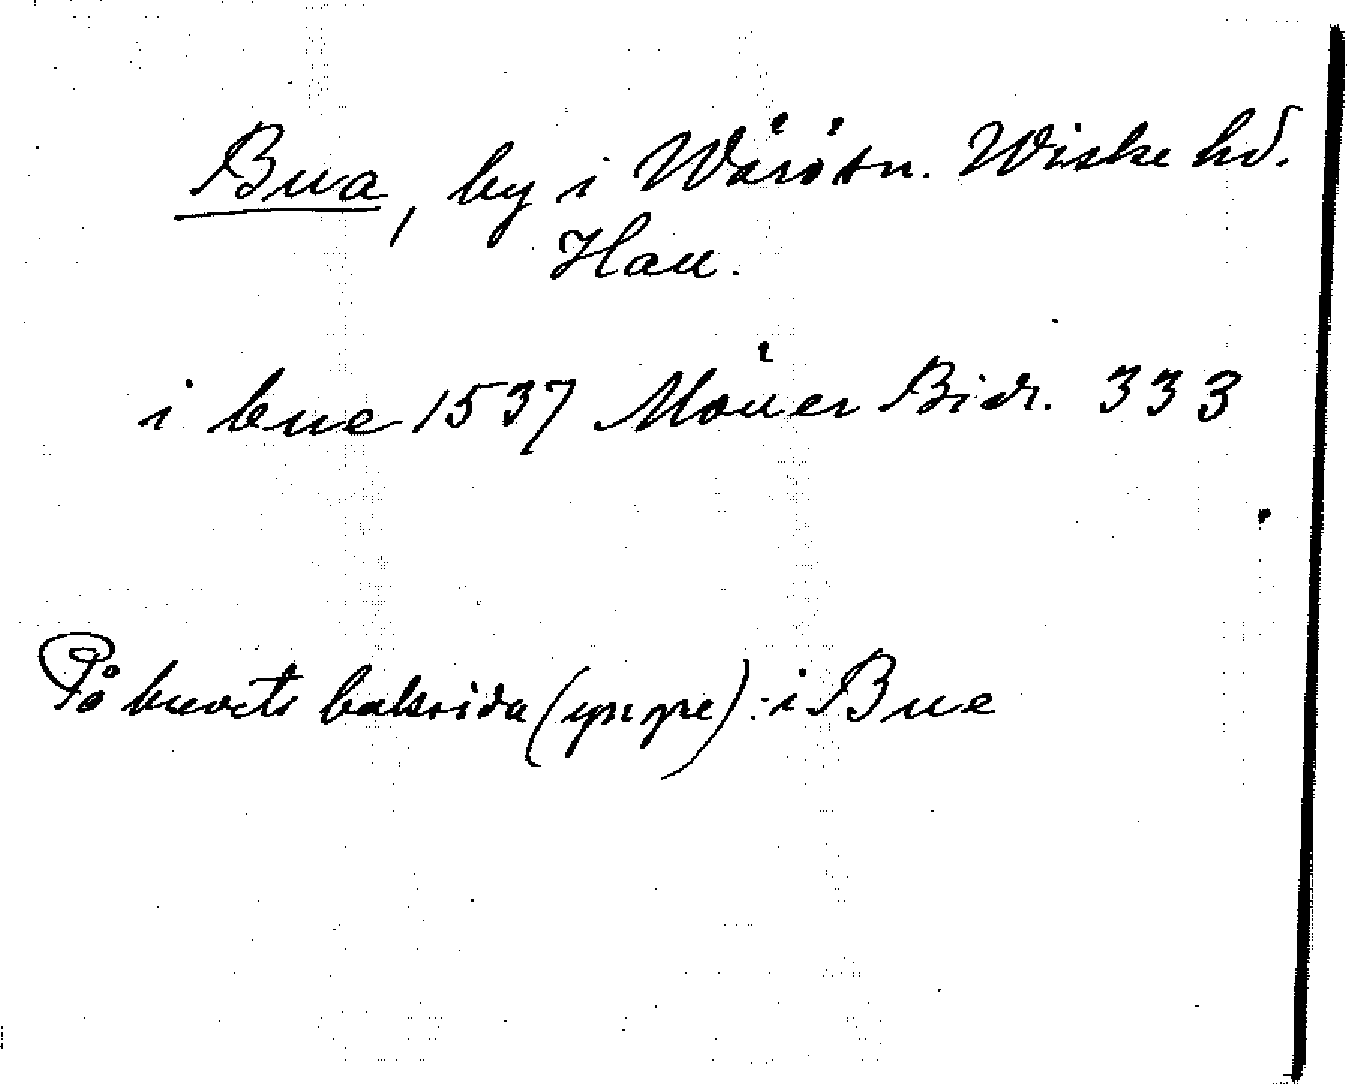 Bua, by i Wärö sn. Wiske hd.
Hall.
i bue 1537 Möller Bidr. 333
På brevets baksida (ypspe): i Bue